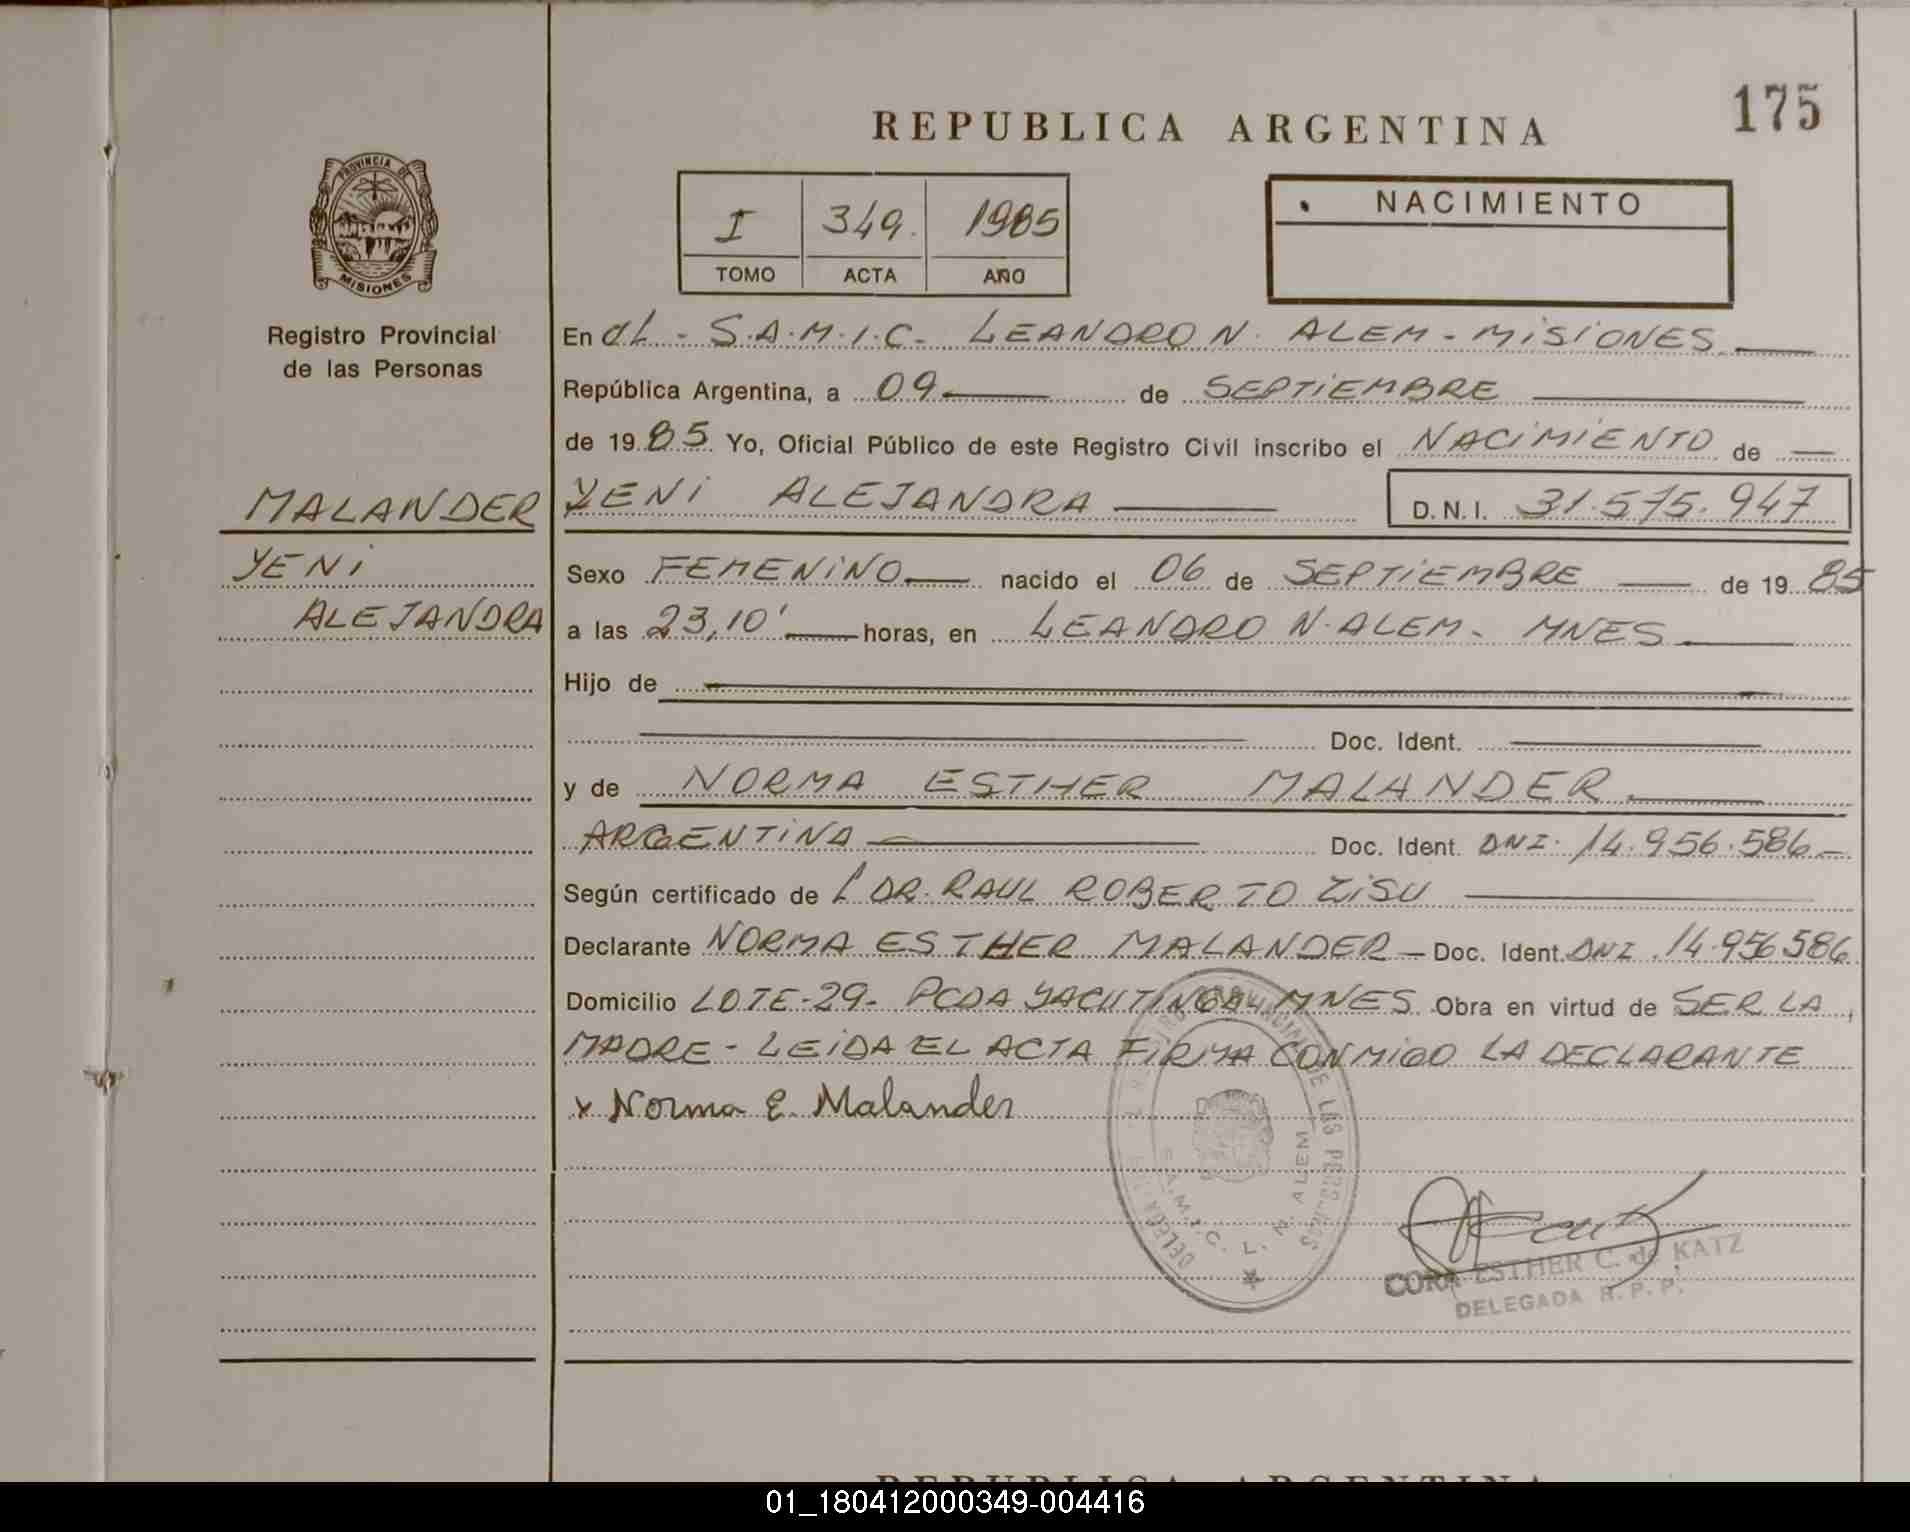 175
REPUBLICA ARGENTINA
PROVINCIA DE
MISIONES
Registro Provincial
de las Personas
I 349. 1985
TOMO ACTA AÑO
NACIMIENTO
En el - S.A.M.I.C. LEANDRO N. ALEM - MISIONES
República Argentina, a 09 de SEPTIEMBRE
de 1985 Yo, Oficial Público de este Registro Civil inscribo el NACIMIENTO de
MALANDER
YENI
ALEJANDRA
YENI ALEJANDRA D.N.I. 31.575.947
Sexo FEMENINO nacido el 06 de SEPTIEMBRE de 1985
a las 23,10' horas, en LEANDRO N. ALEM - MNES
Hijo de
Doc. Ident.
y de NORMA ESTHER MALANDER
ARGENTINA Doc. Ident. DNI. 14.956.586-
Según certificado de l DR. RAUL ROBERTO ZISU
Declarante NORMA ESTHER MALANDER - Doc. Ident. DNI. 14.956586
Domicilio LOTE-29- PCDA YACUTINGA MNES Obra en virtud de SER LA
MADRE - LEIDA EL ACTA FIRMA CONMIGO LA DECLARANTE
x Norma E. Malander
S.A.M.I.C. L. N. ALEM
CORA ESTHER C. de KATZ
DELEGADA R. P. P.
REPUBLICA ARGENTINA
01_180412000349-004416